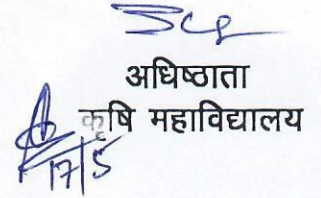 अधिष्ठाता
कृषि महाविद्यालय
17/5